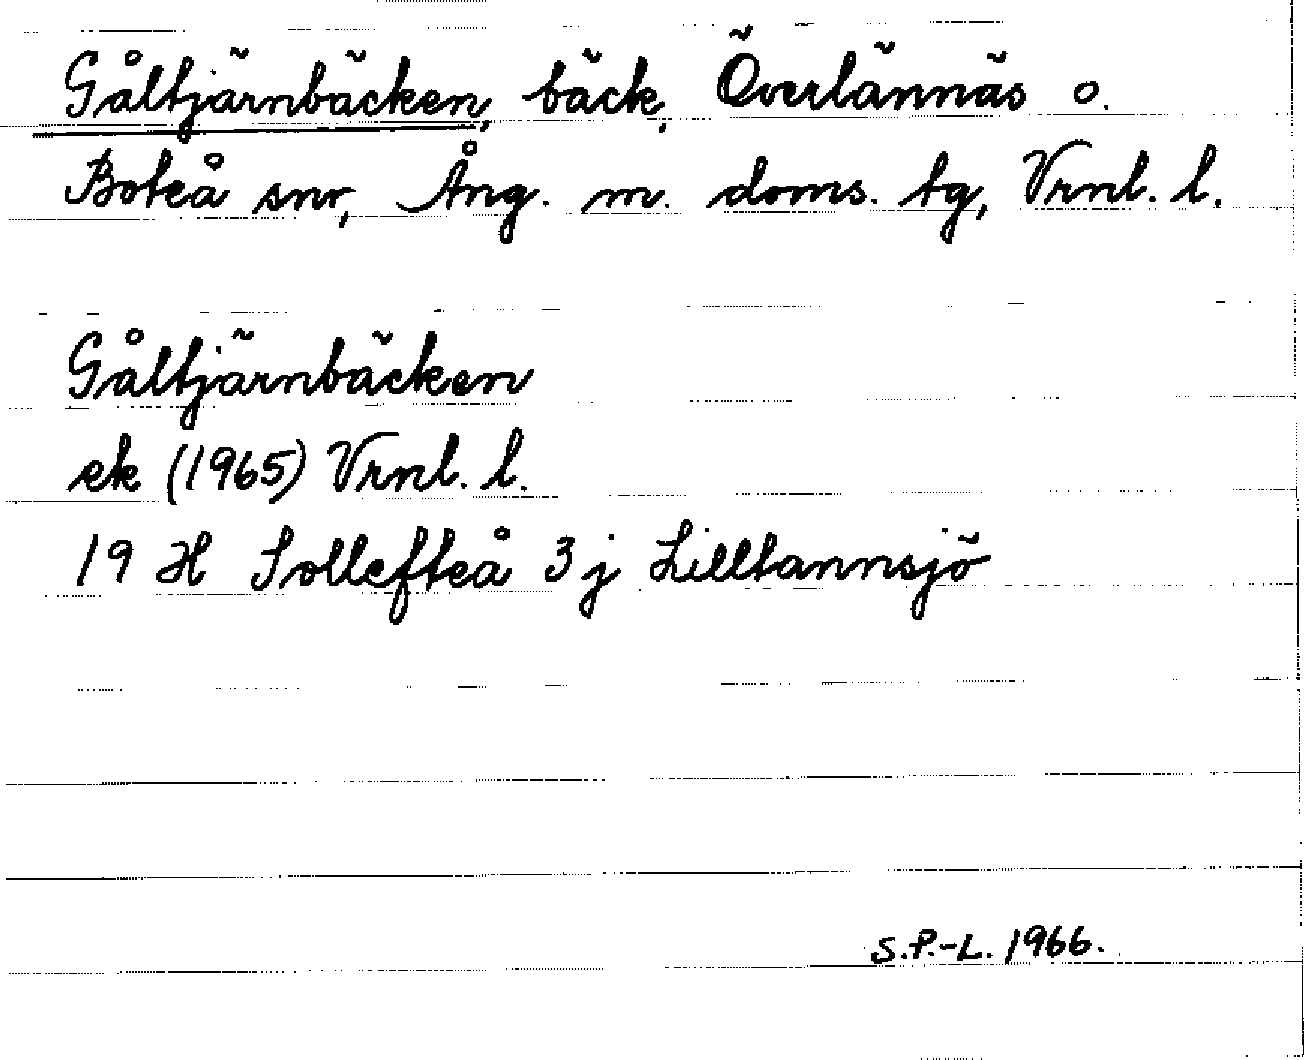 Gåltjärnbäcken, bäck, Överlännäs o.
Boteå snr, Ång. m. doms. tg, Vrnl. l.
Gåltjärnbäcken
ek (1965) Vrnl. l.
19 H Sollefteå 3 j Lilltannsjö
S.P.-L. 1966.